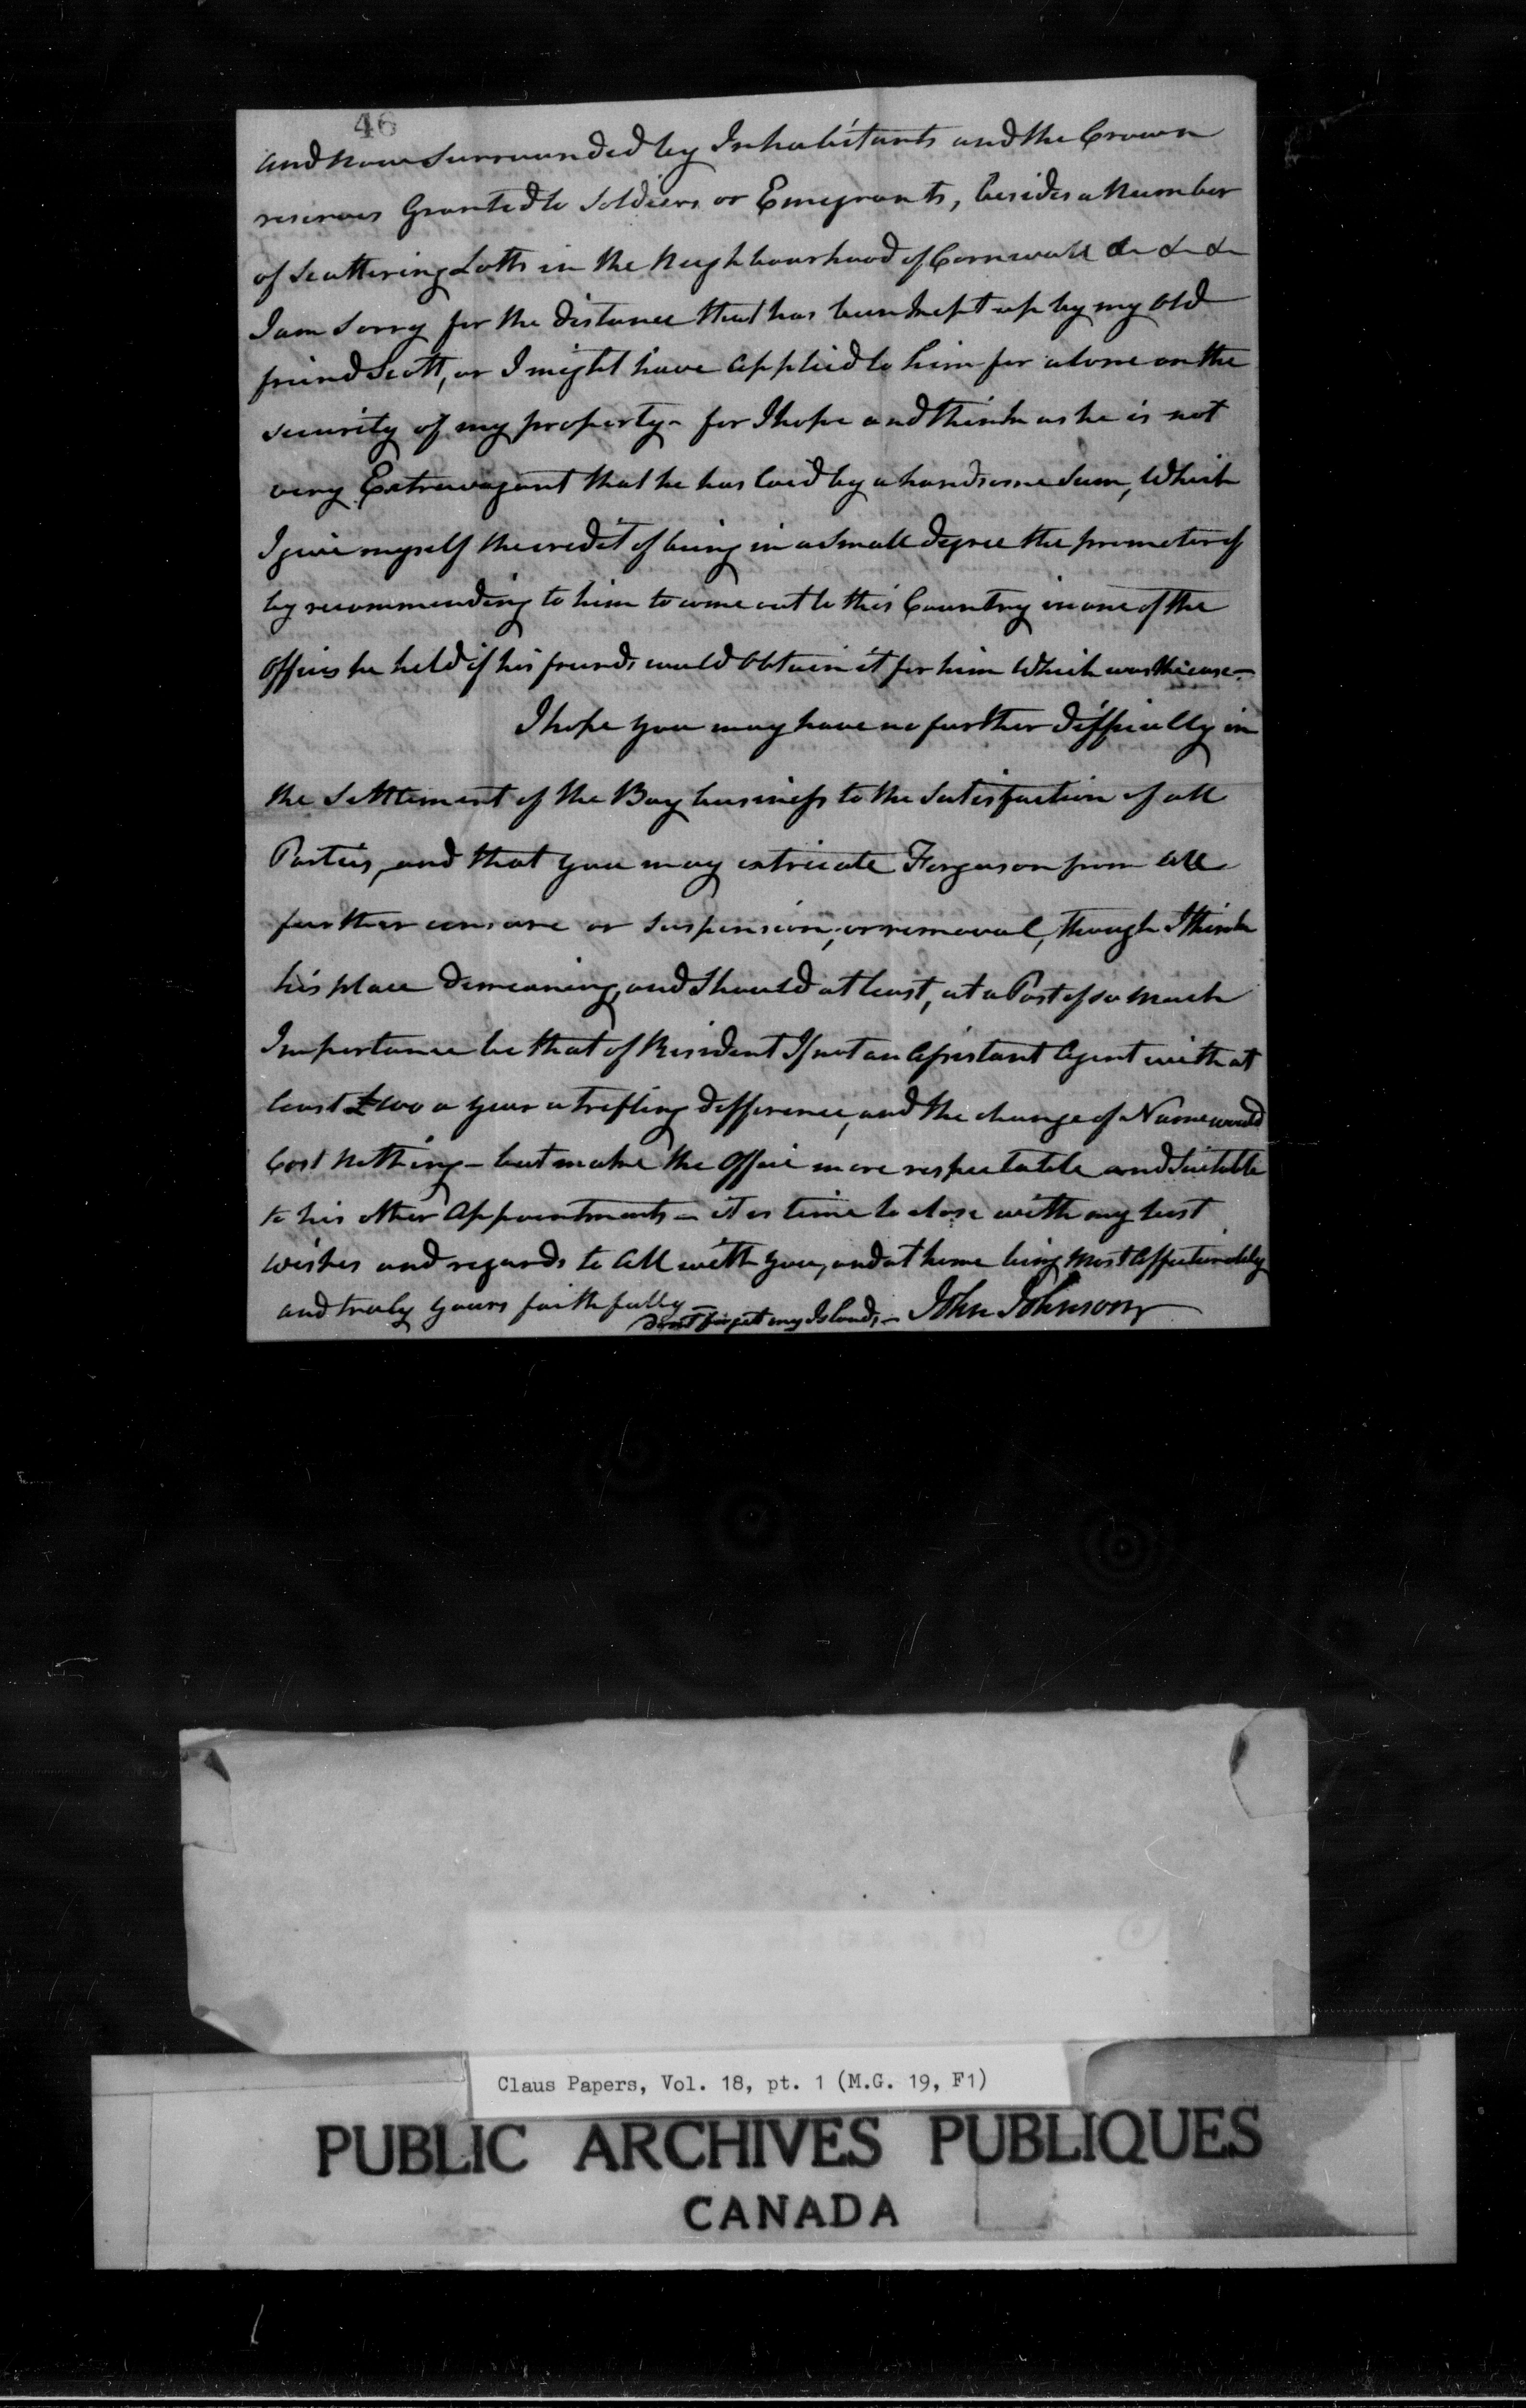 46
and now surrounded by Inhabitants and the Crown
reserves Granted to Soldiers or Emegrants, besides a Number
of Scattering Lotts in the Neighbourhood of Cornwall &c &c &c
I am Sorry for the distance that has been kept up by my Old
friend Scott, or I might have applied to him for a lone on the
security of my property - for I hope and think as he is not
very Extravagant that he has laid by a handsome Sum, Which
I give myself the credit of being in a Small degree the promoter of
by recommending to him to come out to this Country in one of the
Offices he held if his friends could Obtain it for him Which was the case -
I hope you may have no further difficulty in
the Settlement of the Bay business to the Satisfaction of all
Parties, and that you may extricate Ferguson from all
further censure or Suspension, or removal, though I think
his place demeaning, and Should at least, at a Post of so much
Importance be that of Resident If not an Assistant Agent with at
least £100 a year a trifling difference, and the change of Name would
Cost Nothing - but make the Office more respectable and Suitable
to his other Appointments - it is time to close with my best
wishes and regards to all with you, and at home being Most Affectionately
and truly yours faithfully -
dont forget my Islands - John Johnson
Claus Papers, Vol. 18, pt. 1 (M.G. 19, F1)
PUBLIC ARCHIVES PUBLIQUES
CANADA